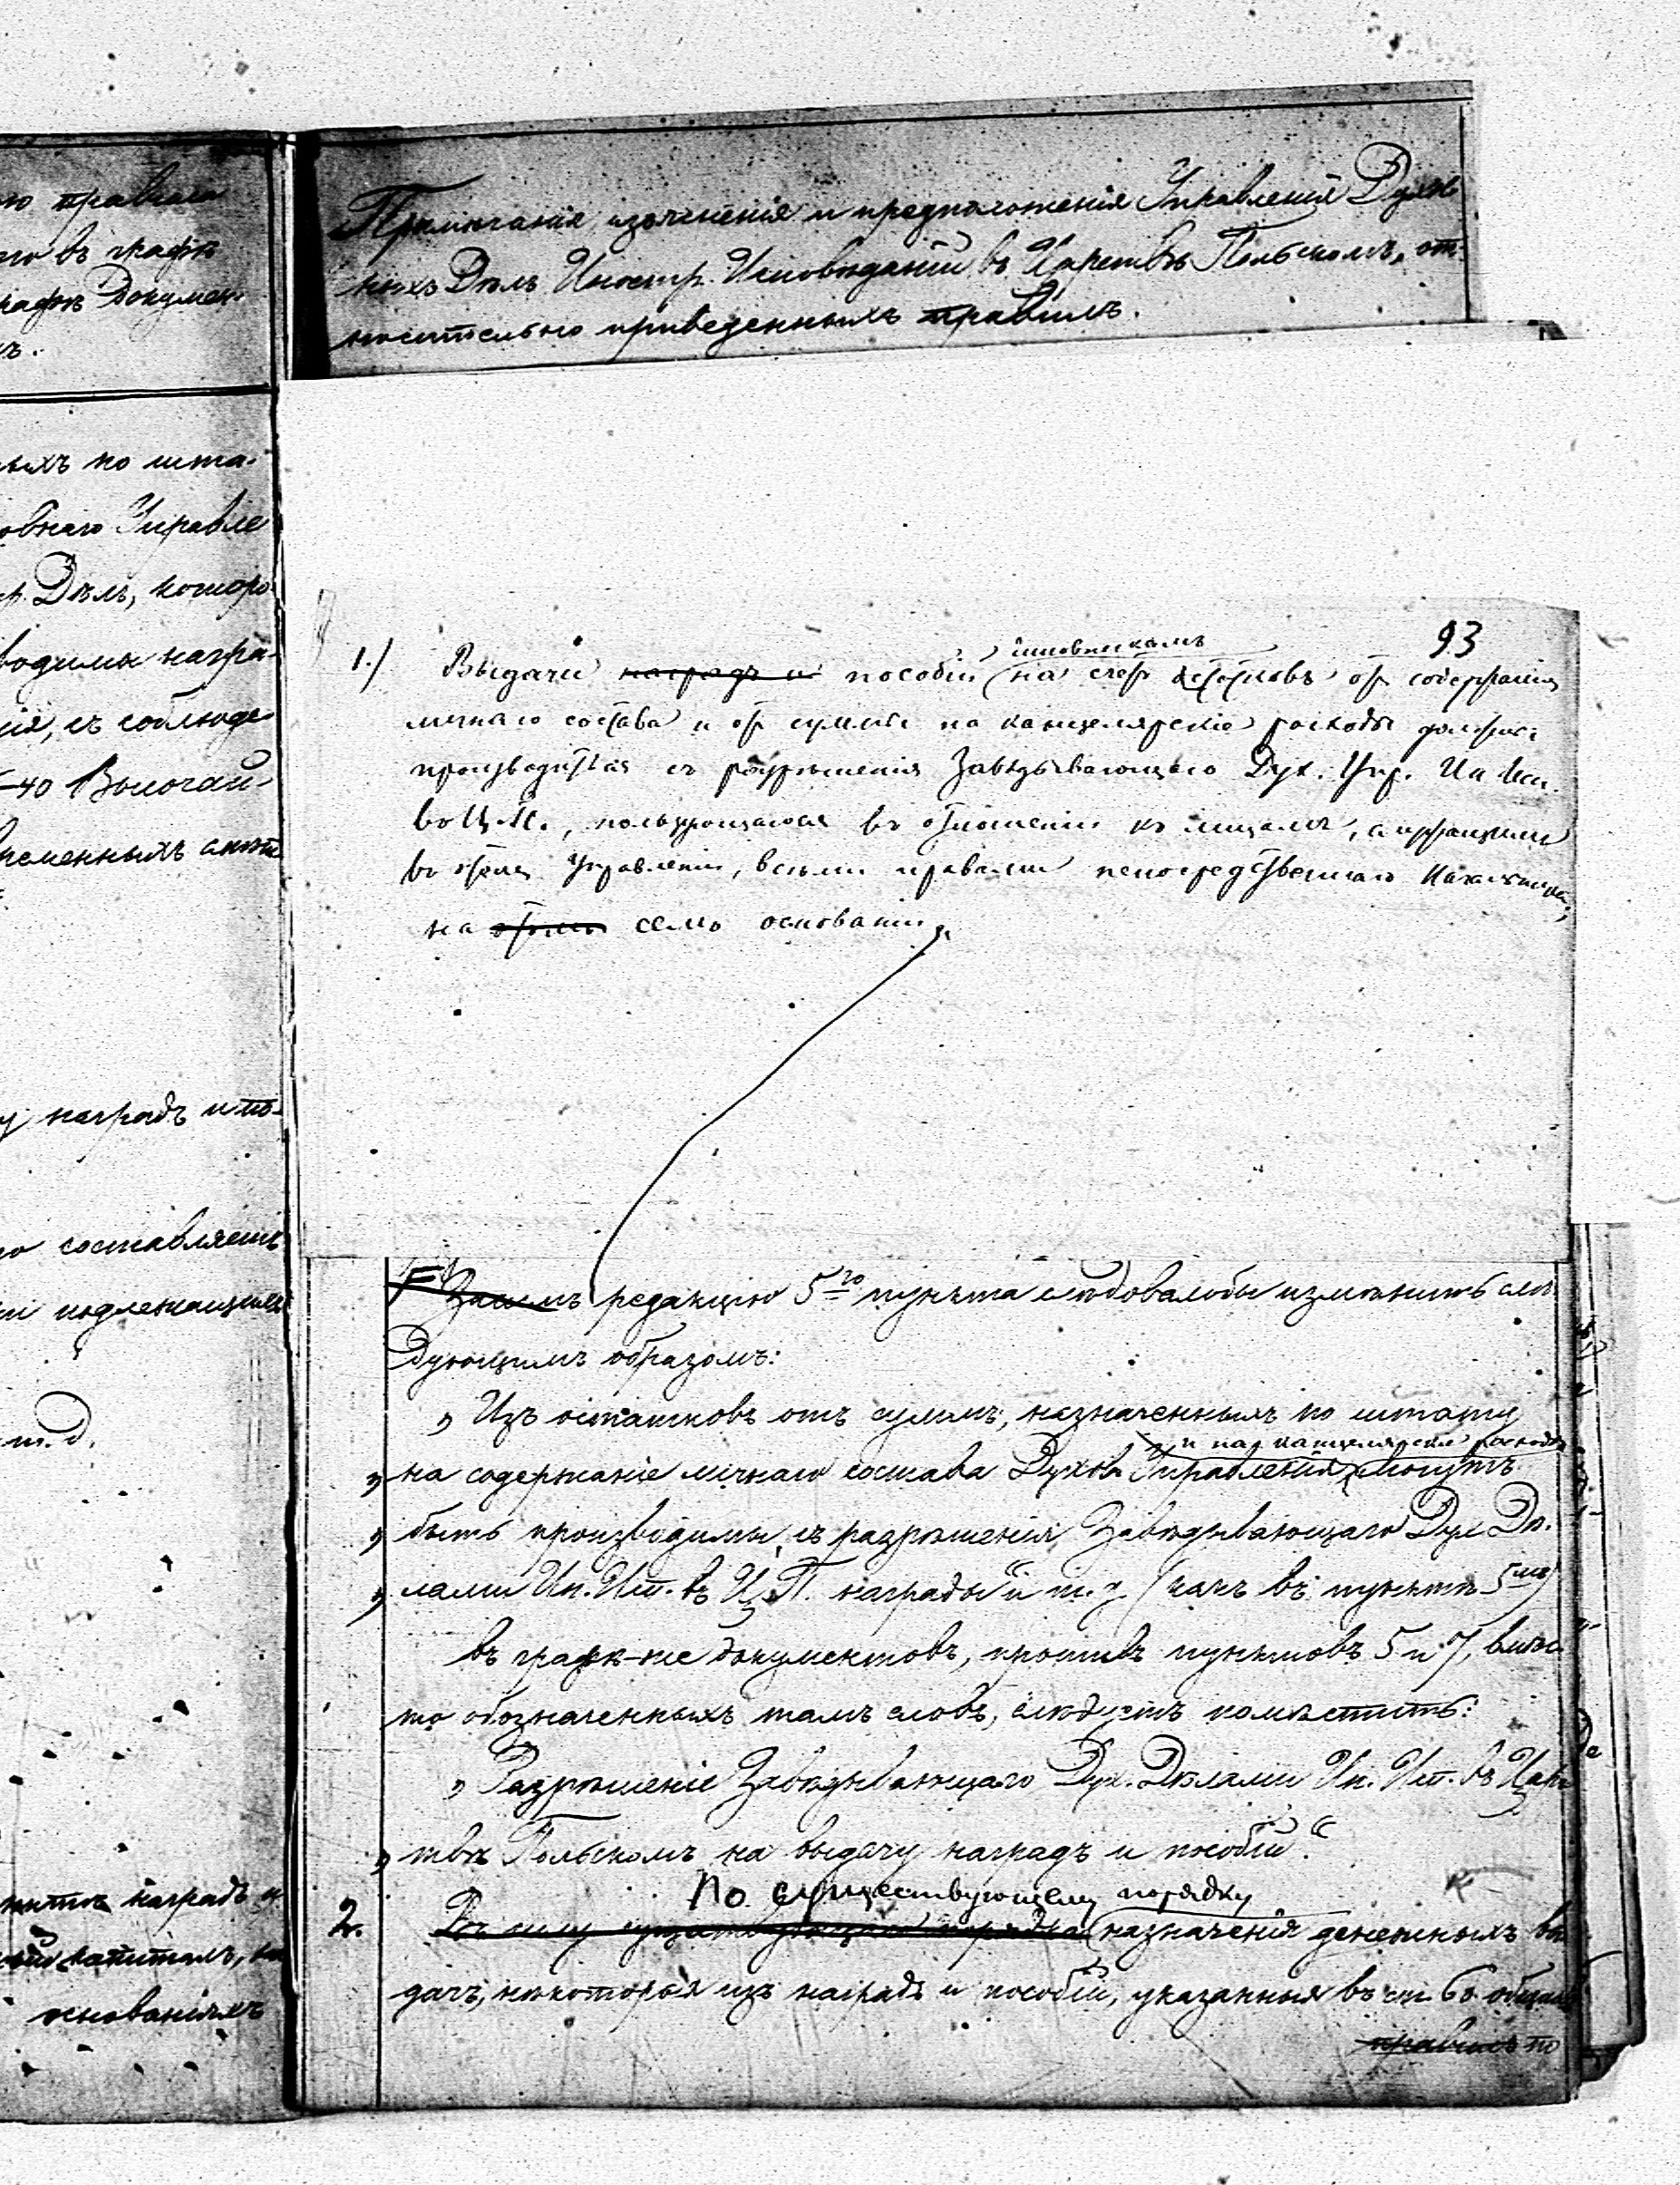 ю правила
го въ графѣ
рафѣ Докумен-
ъ.
ныхъ по шта-
овнаго Управле
р. Дѣлъ, которо
водимы награ-
ія, съ соблюде-
-40 Высочай-
ременныхъ
у наградъ и по-
о составляетъ
и подлежащихъ
т. д.
наградъ и
капиталъ, на
основаніяхъ
Примѣчанія, изъясненія и предположенія Управленія Духов-
ныхъ Дѣлъ Иностр. Исповѣданій въ Царствѣ Польскомъ, от-
носительно приведенныхъ правилъ.
93
чиновникамъ
1.) Выдачи наградъ и пособій на счетъ остатковъ от содержанія
личнаго состава и от суммы на канцелярскіе расходы должны
производиться съ разрѣшенія Завѣдывающаго Дух. Упр. Ин. Исп.
въ Ц. П., пользующагося въ отношеніи къ лицамъ, служащимъ
въ этомъ Управленіи, всѣми правами непосредственнаго Начальника,
на этомъ семъ основаніи,
Затѣмъ редакцію 5го пункта слѣдовало бы измѣнить слѣ-
дующимъ образомъ:
„Изъ остатковъ отъ суммъ, назначенныхъ по штату
и на канцелярскіе расходы
„на содержаніе личнаго состава Духовн Управленія, могутъ
„быть производимы, съ разрѣшенія Завѣдывающаго Дух Дѣ-
„лами Ин. Исп. въ Ц. П. награды“ и т. д. (какъ въ пунктѣ 5мъ)
въ графѣ-же документовъ, противъ пунктовъ 5 и 7, вмѣс-
то обозначенныхъ тамъ словъ, слѣдуетъ помѣстить:
„Разрѣшеніе Завѣдывающаго Дух. Дѣлами Ин. Исп. въ Царс
„твѣ Польскомъ на выдачу наградъ и пособій“.
По существующему порядку
2. Въ силу существующаго порядка назначенія денежныхъ вы
дачъ, нѣкоторыя изъ наградъ и пособій, указанныя въ ст. 60 общихъ
правилъ то